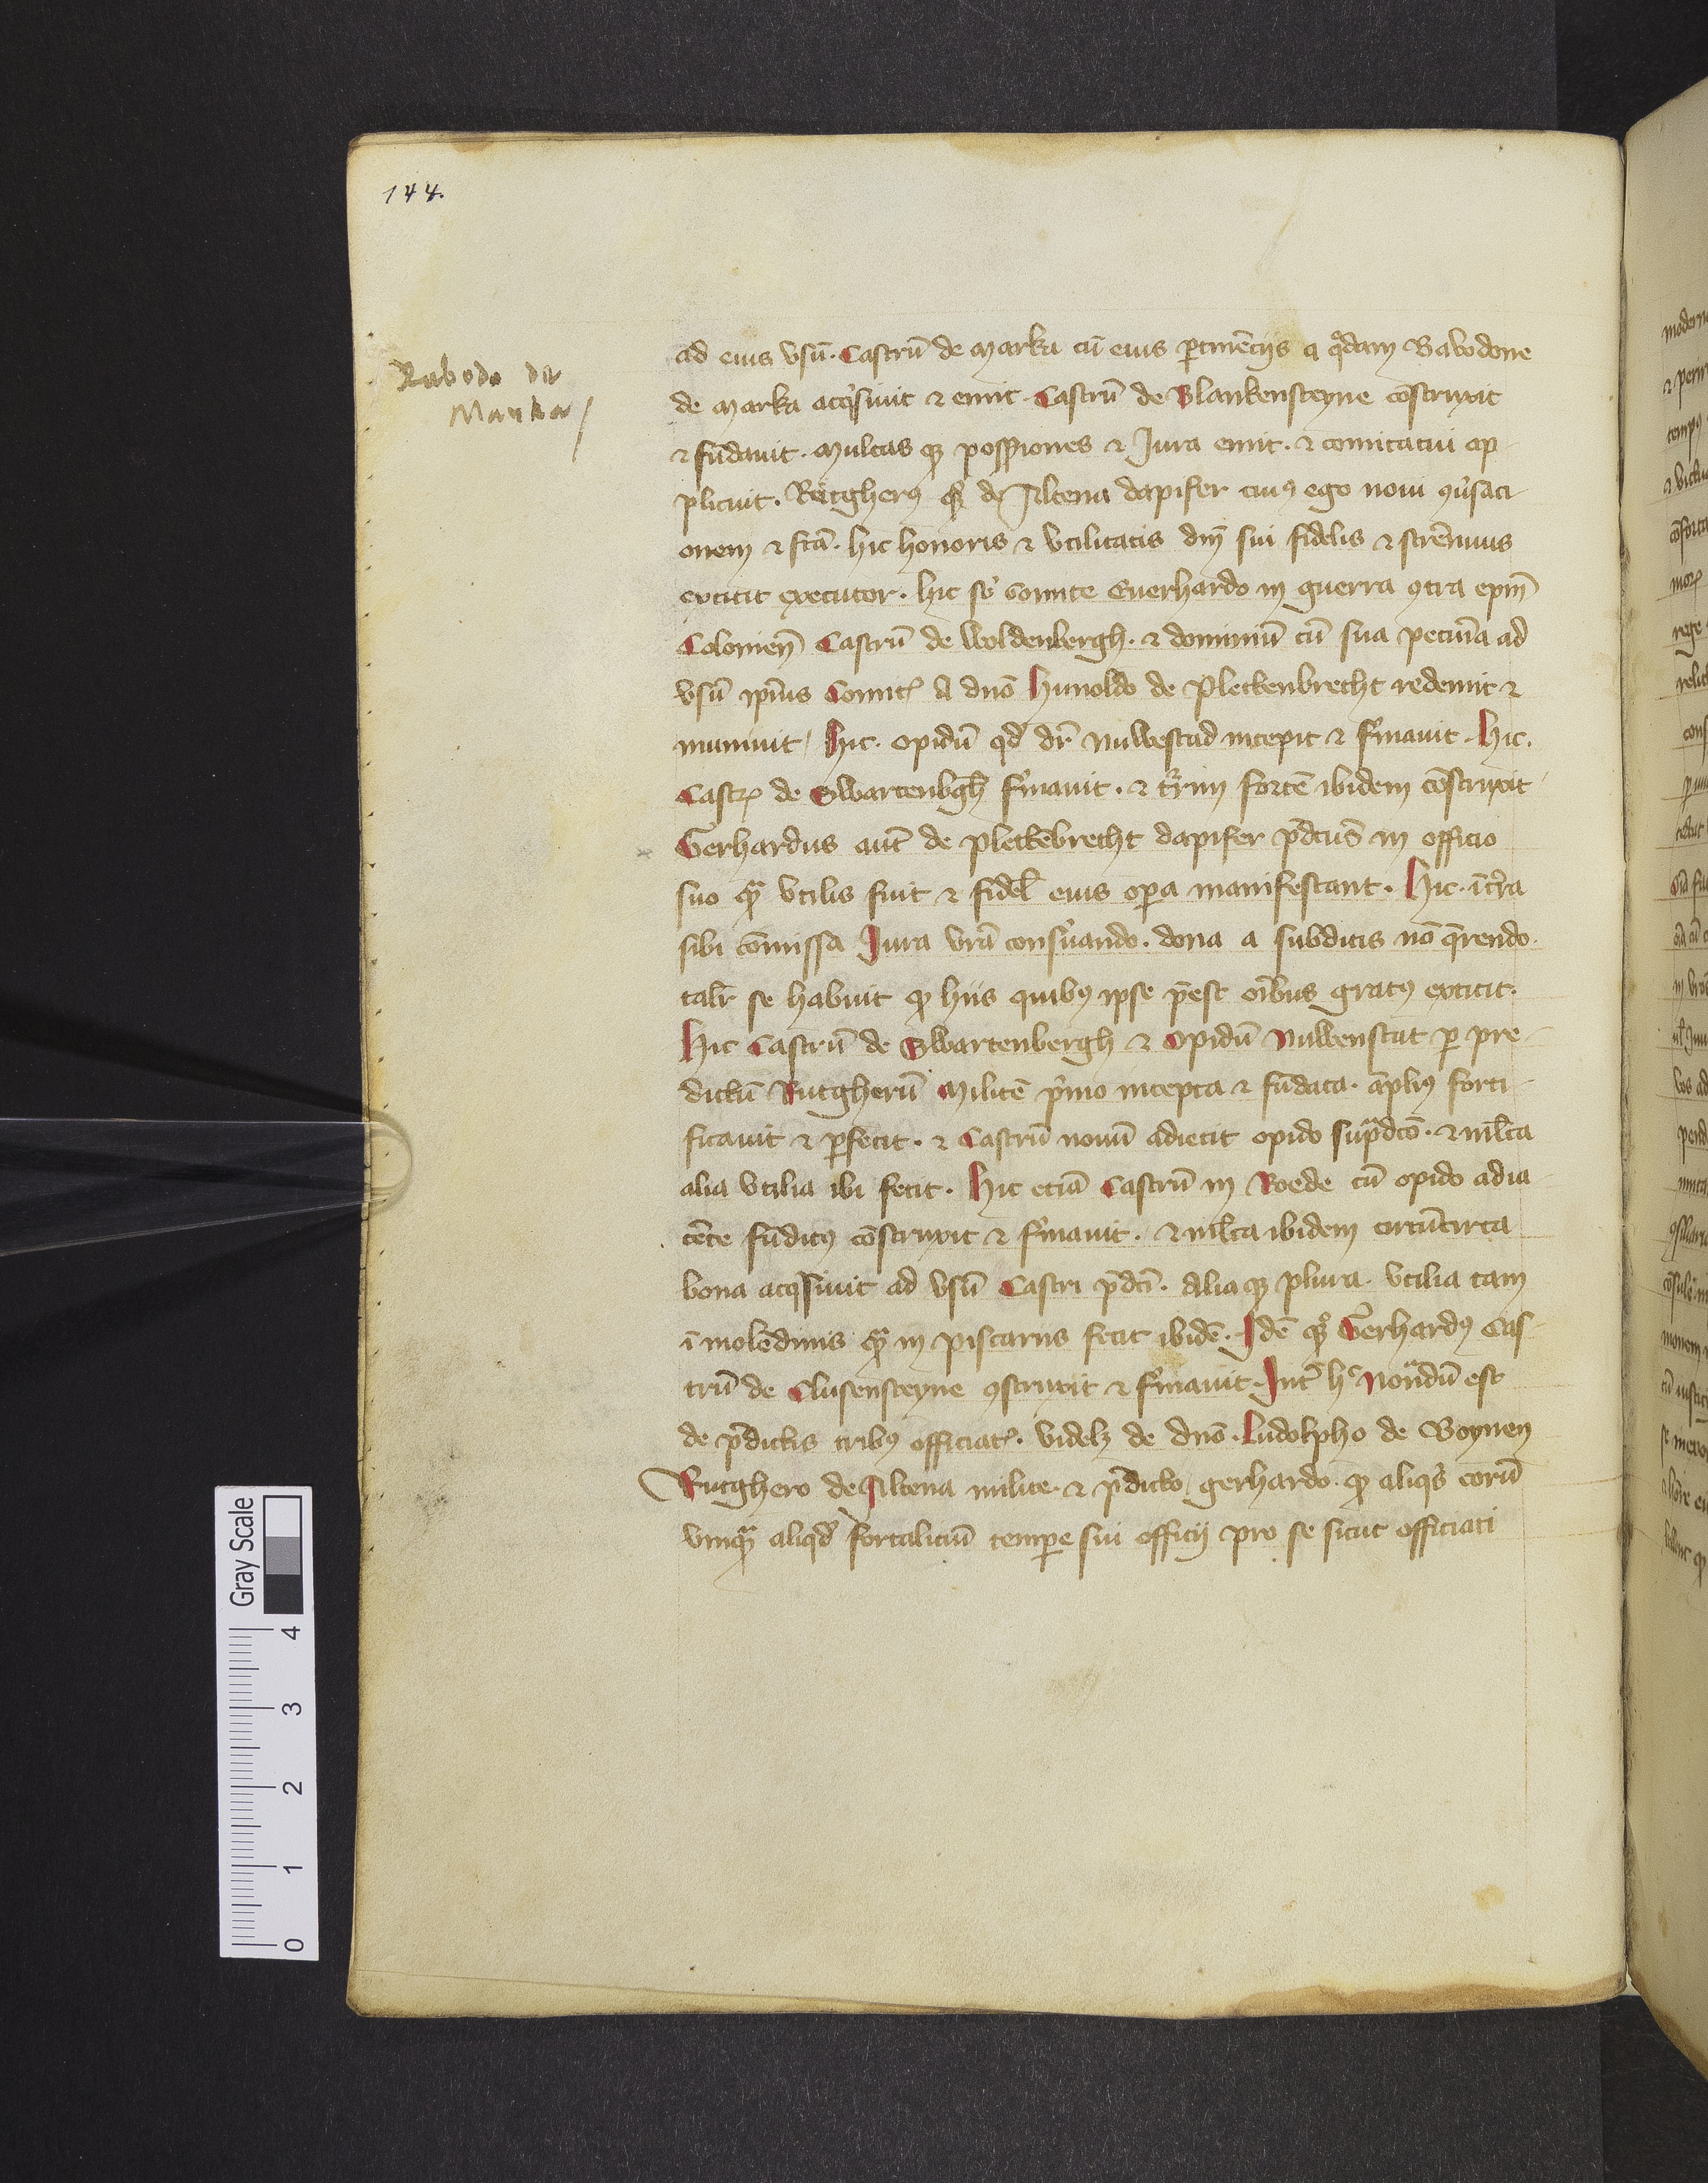 144.
Rabodo de
Marka
ad eius vsū. Castrū de Marka cū eius ꝑtinēcijs a qͦdam Rabodone
de Marka acqͥsiuit ⁊ emit. Castrū de Blankensteyne ꝯ̄struxit
⁊ fūdauit. Multas qꝫ possſiones ⁊ Iura emit. ⁊ comitatui ap
plicuit. Rutgherꝰ qꝫ de Altena dapifer cuiꝰ ego noui ꝯuͥsaci
onem ⁊ fcā. hic honoris ⁊ vtilitatis dnī sui fidelis ⁊ strēnuus
extitit executor. hic sb̓ Comite Euerhardo in guerra ꝯtra epm̄
Colonien̄ Castrū de Woldenbergh. ⁊ dominiū cū sua pecun̄ia ad
vsū ipīus Comitꝭ A dnō Hunoldo de Plettenbrecht redemit ⁊
muniuit. Hic. opidū qd̓ dr̄ Nuwestad incepit ⁊ fͥmauit. Hic.
Castrꝭ de Swartenbg̓h fͥmauit. ⁊ tr̓rim fortē ibidem cōstruxit
Gerhardus aut̄ de plettēbrecht dapifer p̄dcūs in officio
suo qᷓ vtilis fuit ⁊ fidel̓ eius oꝑa manifestant. Hic. īt̓ra
sibi cōmissa Iura vrā conẜuando. dona a subditis nō q̄rendo.
talr̄ se habuit qꝫ hiis quibꝰ ipse p̄est oībus gratꝰ extitit.
Hic Castrū de Swartenbergh ⁊ Opidū Nuwenstat ꝑ pre
dictū Rutgherū Militē pͥmo incepta ⁊ fūdata. āpliꝰ forti
ficauit ⁊ ꝑfecit. ⁊ Castrū nouū adiecit opido supᷓdcō. ⁊ ml̄ta
alia vtilia ibi fecit. Hic etiā Castrū in Roede cū opido adia
cēte fūditꝰ cōstruxit ⁊ fͥmauit. ⁊ ml̄ta ibidem circūcirca
bona acqͥsiuit ad vsū Castri p̄dcī. Alia qꝫ plura. vtilia tam
ī molēdinis qᷓ in piscariis fecit ibidē. Idē qꝫ Gerhardꝰ Cas
trū de Clusensteyne ꝯstruxit ⁊ fͥmauit. Int̓ hͨ Notandū est
de p̄dictis tribꝰ officiatꝭ. videlꝫ de dnō. Ludolpho de Boynen
Rutghero de Altena milite. ⁊ p̄dicto gerhardo. qꝫ aliqͥs eorū
vmqᷓ aliqd̓ fortaliciū temꝑe sui officij pro se sicut officiati